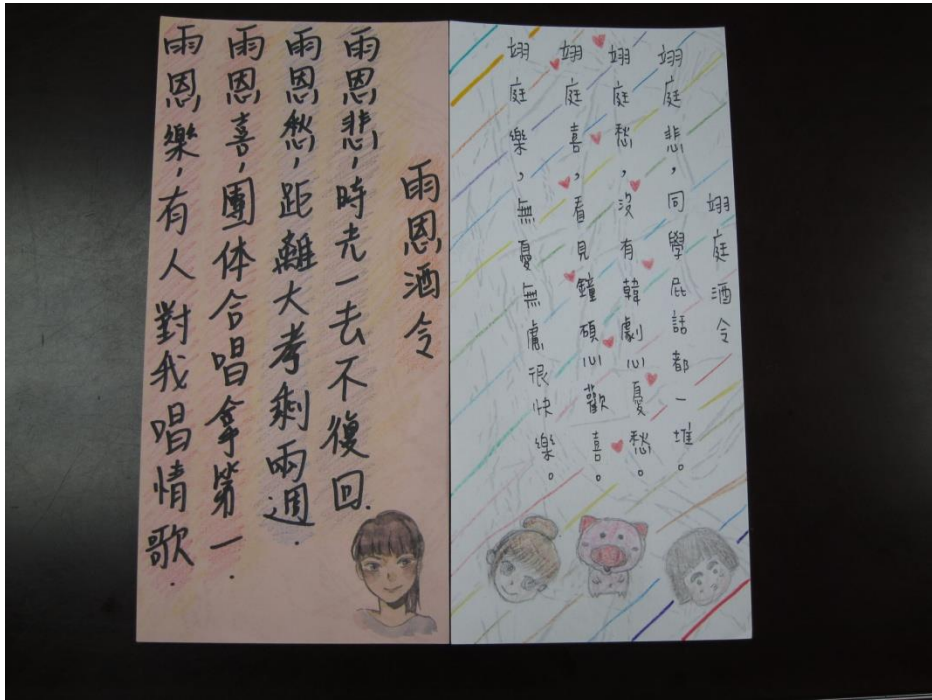 雨恩酒令
雨恩悲，時光一去不復回.
雨恩愁，距離大考剩兩週.
雨恩喜，團体合唱拿第一.
雨恩樂，有人對我唱情歌.
翊庭酒令
翊庭悲，同學屁話都一堆。
翊庭愁，沒有韓劇心憂愁。
翊庭喜，看見鐘碩心歡喜。
翊庭樂，無憂無慮很快樂。